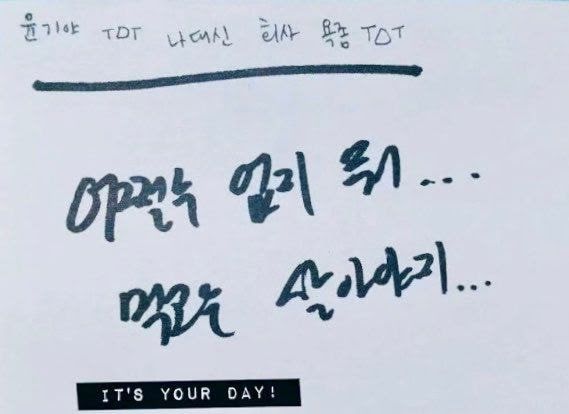 윤기야 TㅁT 나대신 회사 욕좀 TㅁT
어쩔수 없지 뭐...
먹고는 살아야지...
IT'S YOUR DAY!